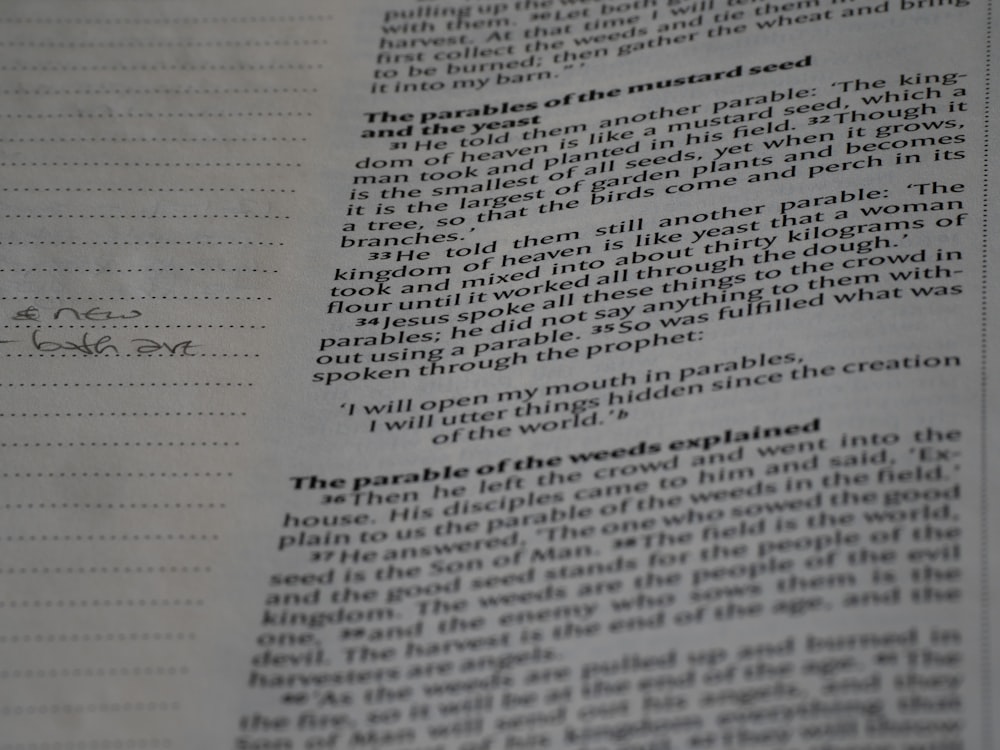 & new
both are
pulling up the
with them. 30Let both
harvest. At that time I will
first collect the weeds and tie them
to be burned; then gather the wheat and bring
it into my barn.” ’
The parables of the mustard seed
and the yeast
31He told them another parable: ‘The king-
dom of heaven is like a mustard seed, which a
man took and planted in his field. 32Though it
is the smallest of all seeds, yet when it grows,
it is the largest of garden plants and becomes
a tree, so that the birds come and perch in its
branches.’
33He told them still another parable: ‘The
kingdom of heaven is like yeast that a woman
took and mixed into about thirty kilograms of
flour until it worked all through the dough.’
34Jesus spoke all these things to the crowd in
parables; he did not say anything to them with-
out using a parable. 35So was fulfilled what was
spoken through the prophet:
‘I will open my mouth in parables,
I will utter things hidden since the creation
of the world.’b
The parable of the weeds explained
36Then he left the crowd and went into the
house. His disciples came to him and said, ‘Ex-
plain to us the parable of the weeds in the field.’
37He answered, ‘The one who sowed the good
seed is the Son of Man. 38The field is the world,
and the good seed stands for the people of the
kingdom. The weeds are the people of the evil
one, 39and the enemy who sows them is the
devil. The harvest is the end of the age, and the
harvesters are angels.
40‘As the weeds are pulled up and burned in
the fire, so it will be at the end of the age. 41The
Son of Man will send out his angels, and they
of his kingdom everything that